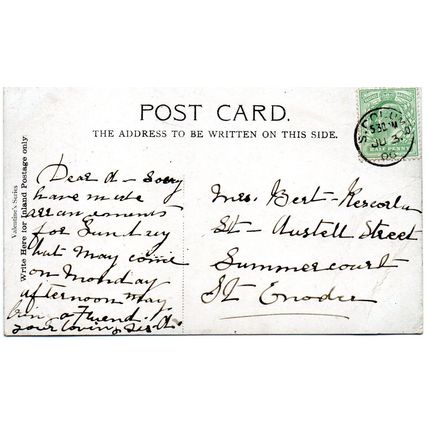 POST CARD.
THE ADDRESS TO BE WRITTEN ON THIS SIDE.
Valentine's Series
Write Here for Inland Postage only.
Dear A - Sorry
have made
arrangements
for Sunday
but may come
on Monday
afternoon may
bring a Friend.
your loving Sis A.
Mrs. Bert - Rescorla
St - Austell Street
Summercourt
St Enoder
ST COLUMB
5.30
JU 3
06
HALF PENNY